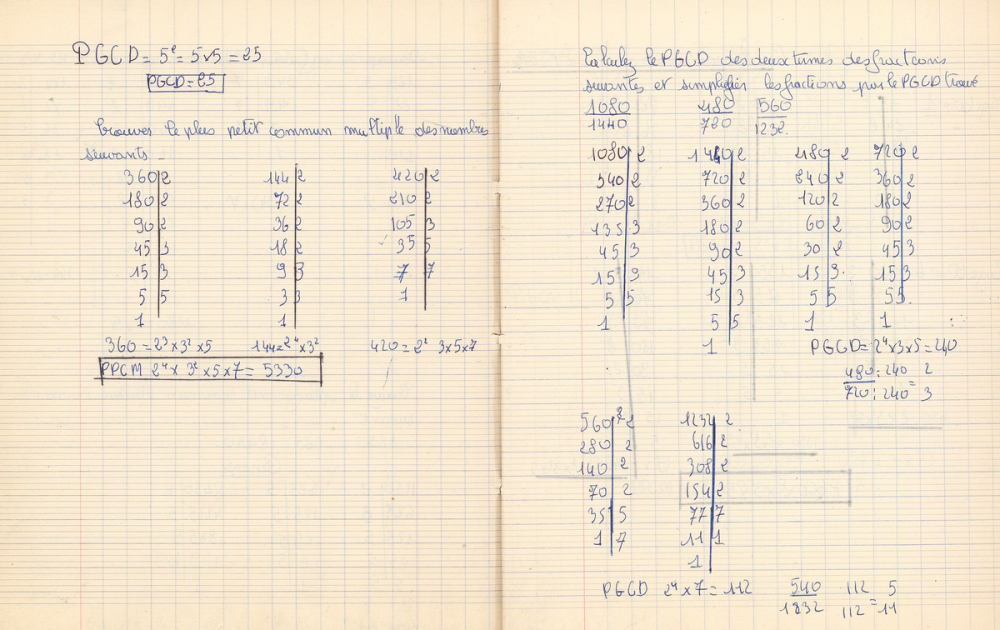 PGCD = 5² = 5x5 = 25
PGCD = 25
trouver le plus petit commun multiple des nombres
suivants -
360 2 144 2 420 2
180 2 72 2 210 2
90 2 36 2 105 3
45 3 18 2 35 5
15 3 9 3 7 7
5 5 3 3 1
1 1
360 = 2³ x 3² x 5 144 = 2⁴ x 3² 420 = 2² 3x5x7
PPCM 2⁴ x 3² x 5 x 7 = 5330
Calculez le PGCD des deux times des fractions
suivantes et simplifier les fractions par le PGCD trouvé
1080 480 560
1440 720 1232.
1080 2 1440 2 480 2 720 2
540 2 720 2 240 2 360 2
270 2 360 2 120 2 180 2
135 3 180 2 60 2 90 2
45 3 90 2 30 2 45 3
15 3 45 3 15 3. 15 3
5 5 15 3 5 5 5 5.
1 5 5 1 1
1
PGCD = 2⁴ x 3 x 5 = 240
480 : 240 2
720 : 240 = 3
560 2 1232 2
280 2 616 2
140 2 308 2
70 2 154 2
35 5 77 7
1 7 11 1
1
PGCD 2⁴ x 7 = 112
540 112 5
1232 112 = 11